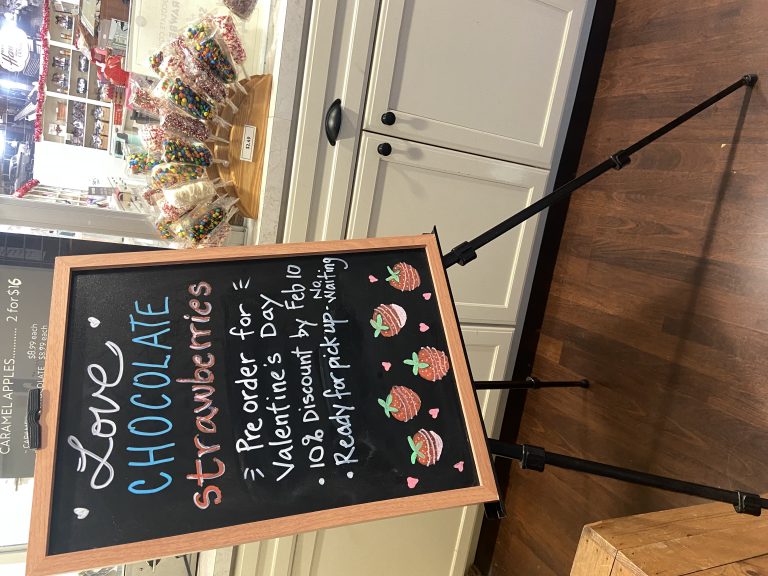 Love
CHOCOLATE
strawberries
Pre order for
Valentine's Day
• 10% Discount by Feb 10
• Ready for pickup - No
Waiting
CARAMEL APPLES............ 2 for $16
$8.99 each
$2.49